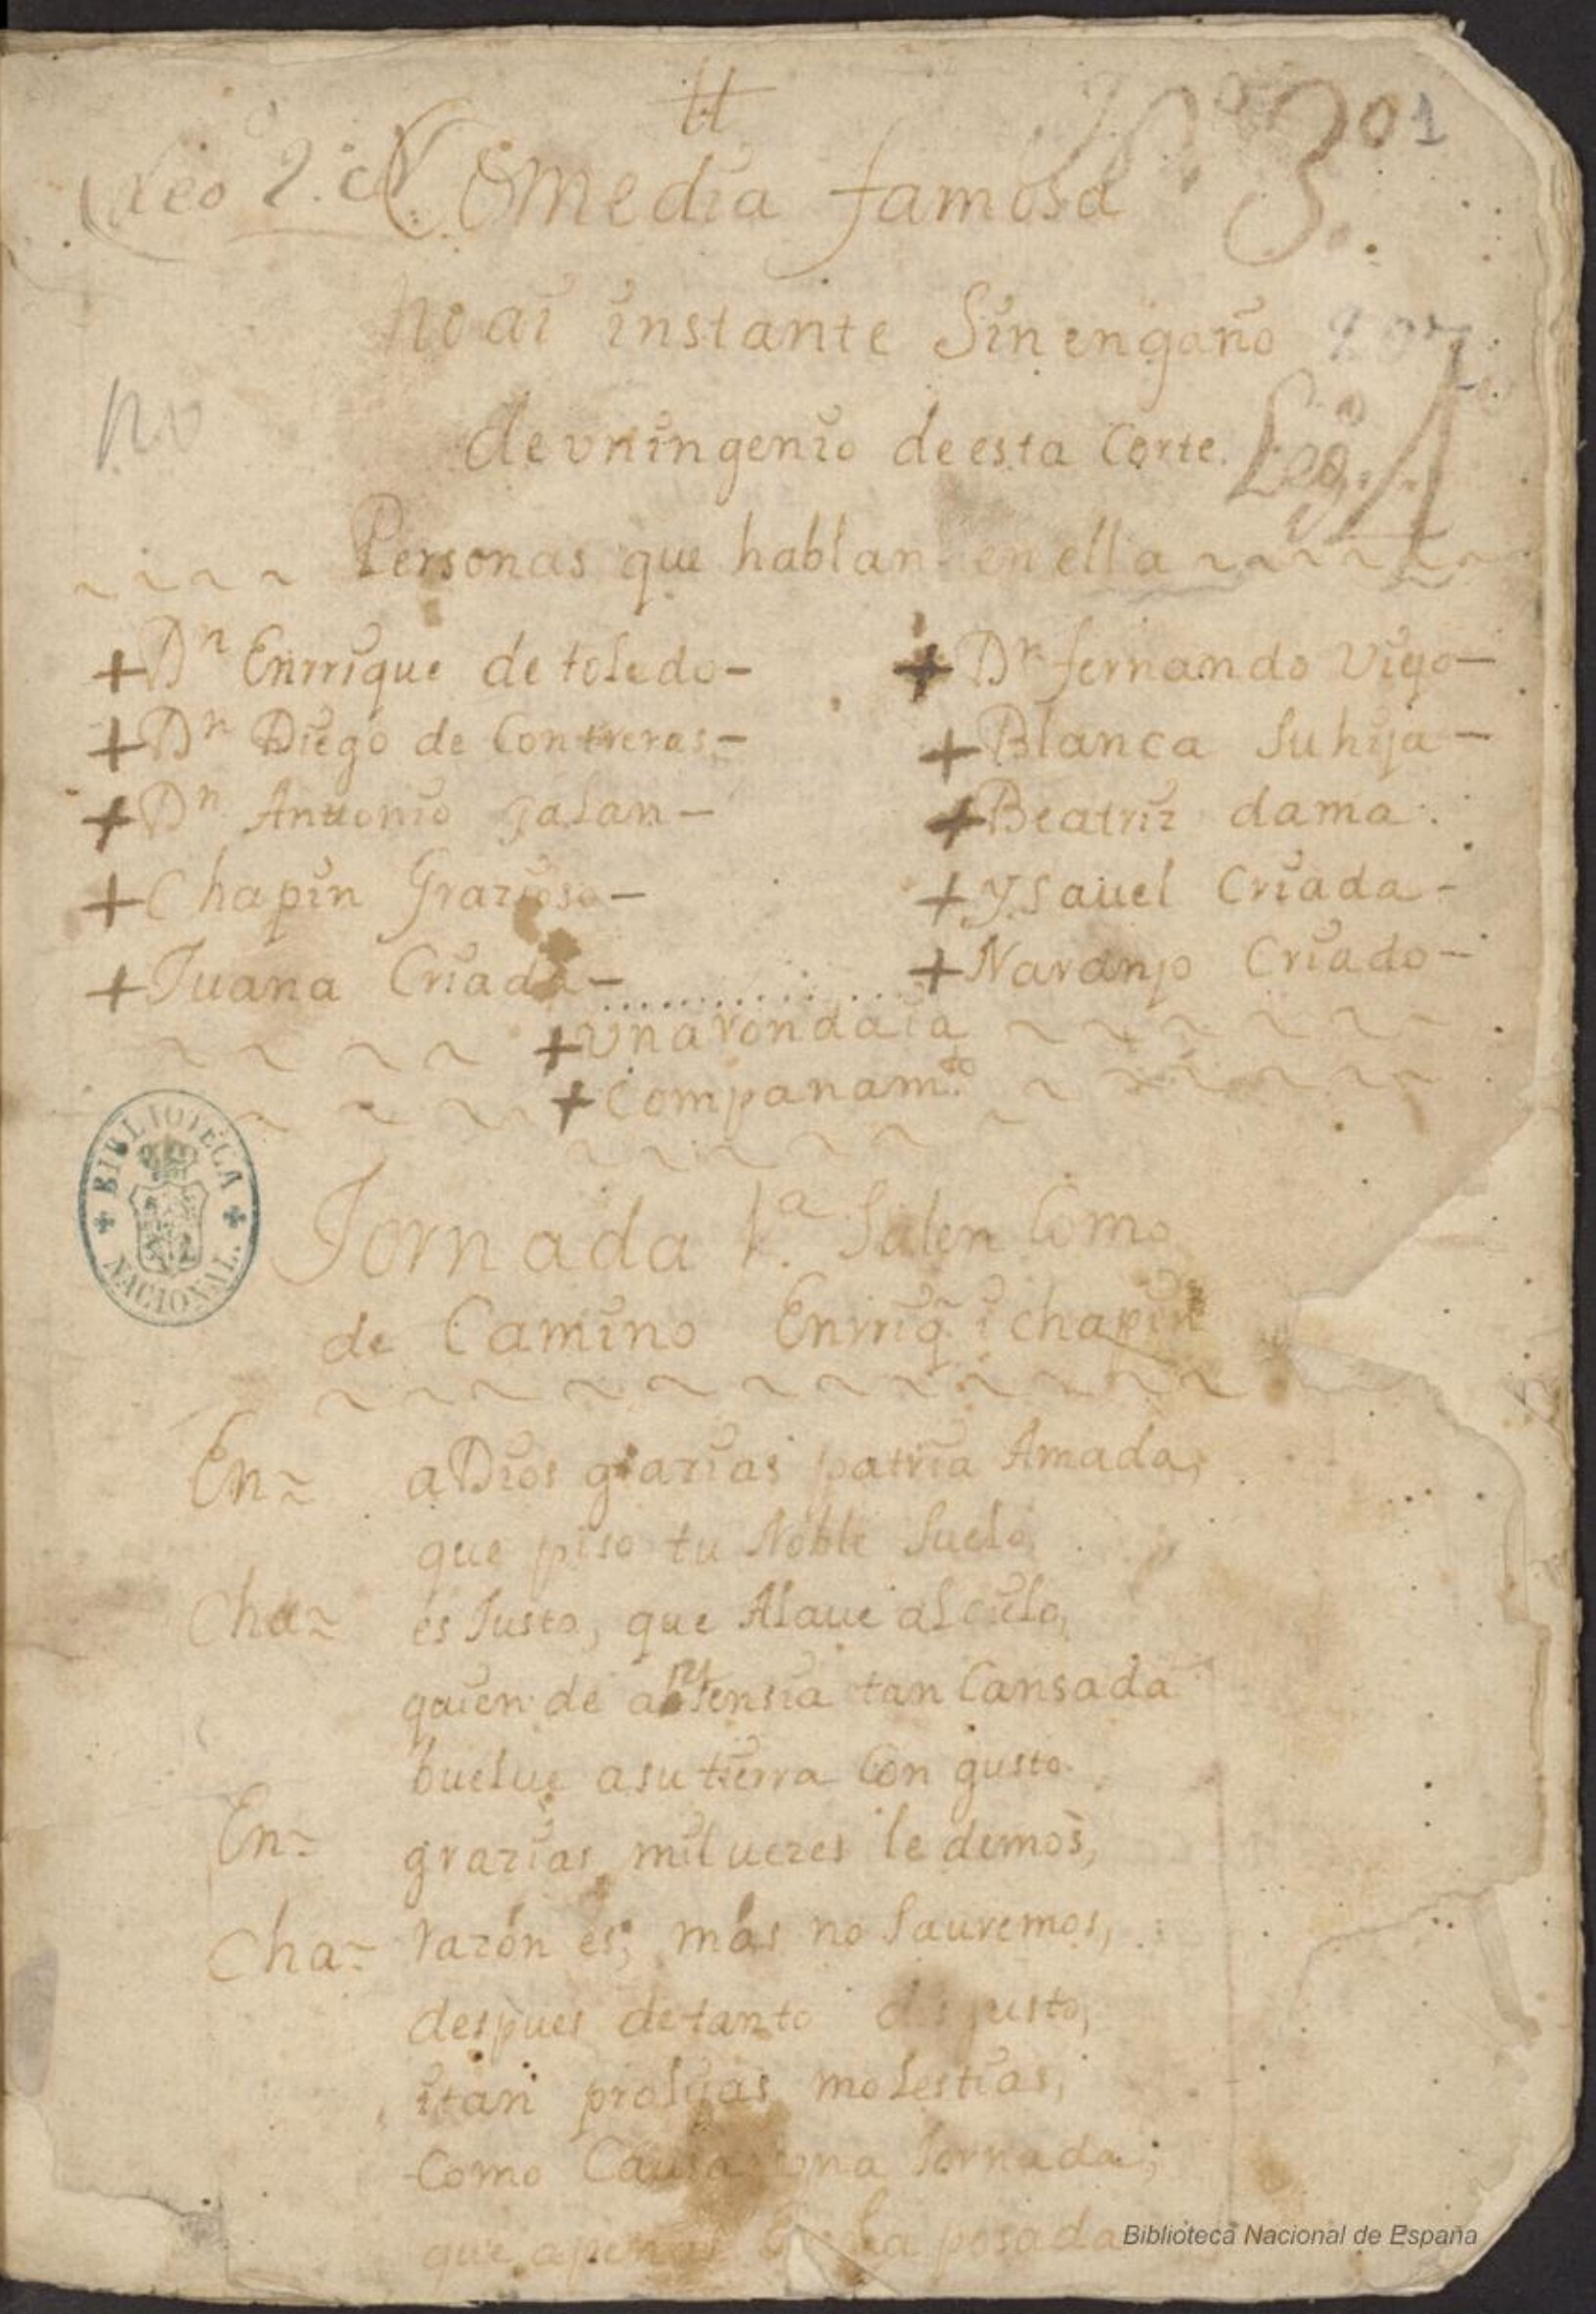 Comedia famosa
1
no ai instante Sin engaño
no
de vn ingenio de esta Corte.
Leg.
Personas que hablan en ella
+ Dn Enrrique de toledo - + Dn fernando Vigo -
+ Dn Diego de Contreras - + Blanca Su hija -
+ Dn Antonio galan - + Beatriz dama.
+ Chapin Grazioso - + Ysauel Criada -
+ Juana Criada - + Naranjo Criado -
+ Vna ronda ia
+ Companam.to
BIBLIOTECA NACIONAL.
Jornada 1.a Salen Como
de Camino Enrriq̃ i chapin
En~ a Dios grazias patria Amada,
que piso tu Noble Suelo
Cha~ es Justo, que Alaue al cielo,
quien de ausensia tan Cansada
buelue a su tierra Con gusto.
En~ grazias mil uezes le demos,
Cha~ razon es; mas no Sauremos,
despues de tanto disgusto,
i tan prolijas molestias,
Como Causa vna Jornada;
que apenas posada
Biblioteca Nacional de España